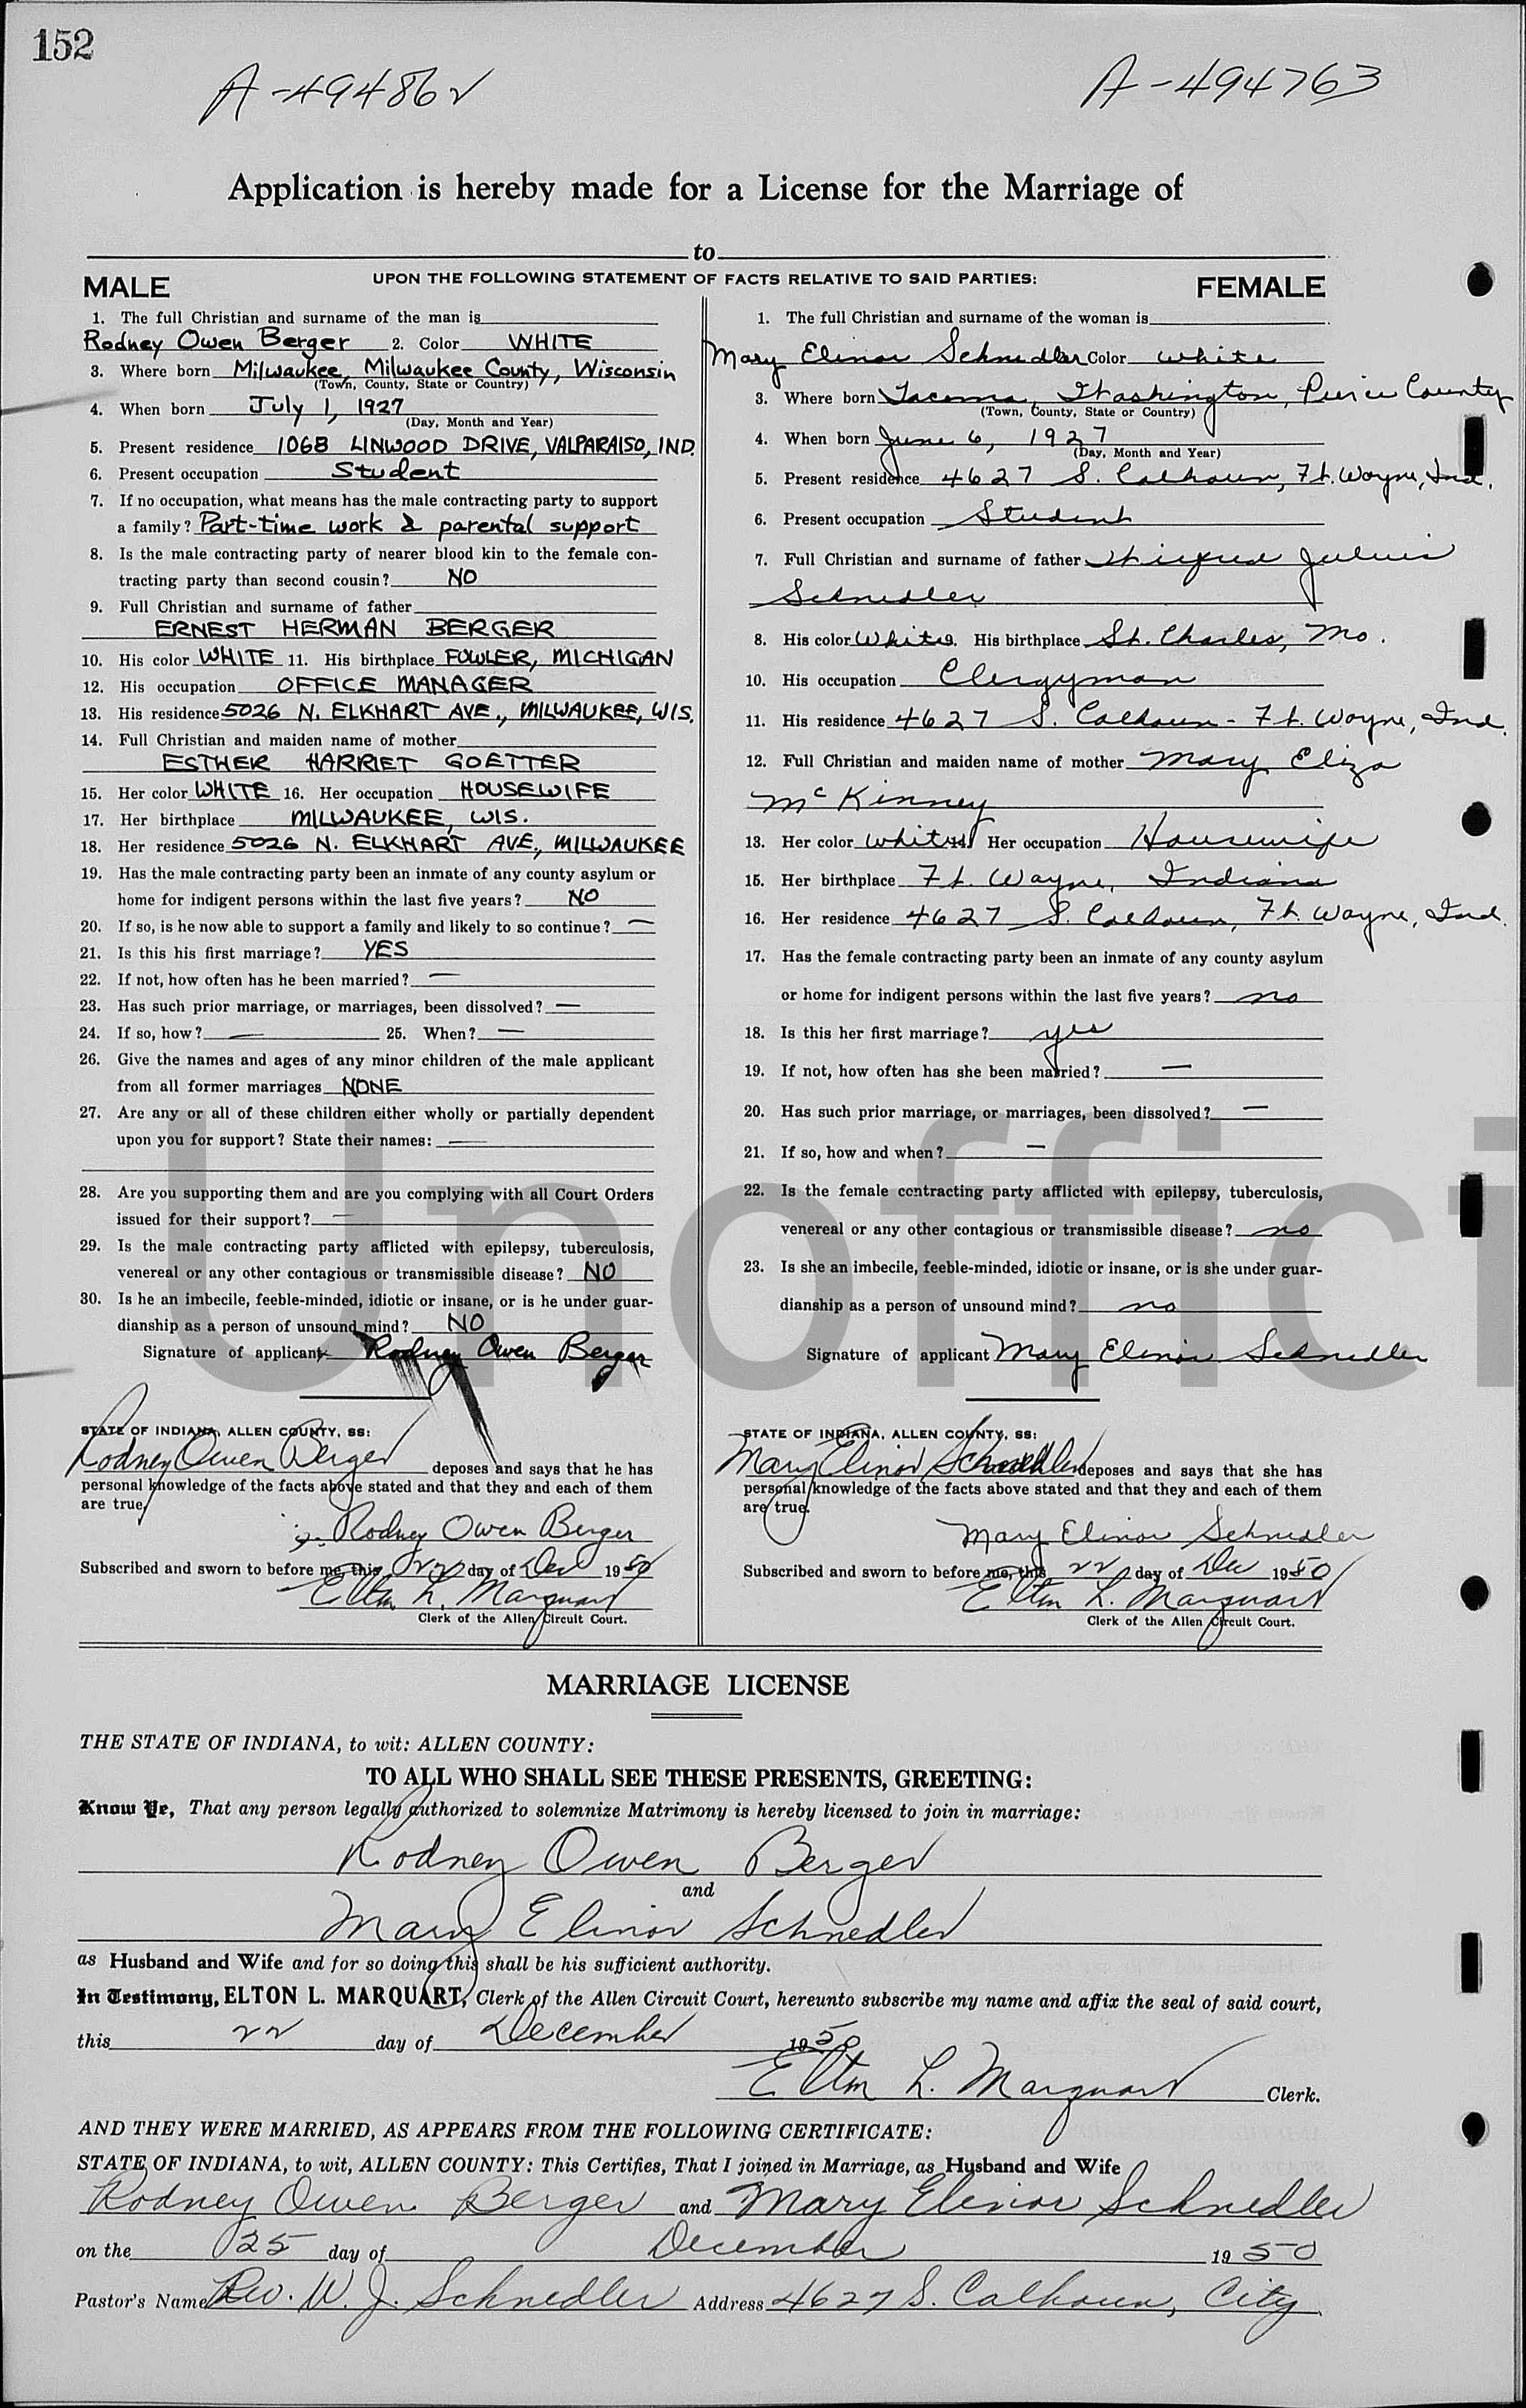 152
A-494862 A-494763
Application is hereby made for a License for the Marriage of
to
UPON THE FOLLOWING STATEMENT OF FACTS RELATIVE TO SAID PARTIES:
MALE
1. The full Christian and surname of the man is
Rodney Owen Berger 2. Color WHITE
3. Where born Milwaukee, Milwaukee County, Wisconsin
(Town, County, State or Country)
4. When born July 1, 1927
(Day, Month and Year)
5. Present residence 106B LINWOOD DRIVE, VALPARAISO, IND.
6. Present occupation Student
7. If no occupation, what means has the male contracting party to support
a family? Part-time work & parental support
8. Is the male contracting party of nearer blood kin to the female con-
tracting party than second cousin? NO
9. Full Christian and surname of father
ERNEST HERMAN BERGER
10. His color WHITE 11. His birthplace FOWLER, MICHIGAN
12. His occupation OFFICE MANAGER
13. His residence 5026 N. ELKHART AVE., MILWAUKEE, WIS.
14. Full Christian and maiden name of mother
ESTHER HARRIET GOETTER
15. Her color WHITE 16. Her occupation HOUSEWIFE
17. Her birthplace MILWAUKEE, WIS.
18. Her residence 5026 N. ELKHART AVE., MILWAUKEE
19. Has the male contracting party been an inmate of any county asylum or
home for indigent persons within the last five years? NO
20. If so, is he now able to support a family and likely to so continue? —
21. Is this his first marriage? YES
22. If not, how often has he been married? —
23. Has such prior marriage, or marriages, been dissolved? —
24. If so, how? — 25. When? —
26. Give the names and ages of any minor children of the male applicant
from all former marriages NONE
27. Are any or all of these children either wholly or partially dependent
upon you for support? State their names: —
28. Are you supporting them and are you complying with all Court Orders
issued for their support? —
29. Is the male contracting party afflicted with epilepsy, tuberculosis,
venereal or any other contagious or transmissible disease? NO
30. Is he an imbecile, feeble-minded, idiotic or insane, or is he under guar-
dianship as a person of unsound mind? NO
Signature of applicant x Rodney Owen Berger
STATE OF INDIANA, ALLEN COUNTY, SS:
Rodney Owen Berger deposes and says that he has
personal knowledge of the facts above stated and that they and each of them
are true.
Rodney Owen Berger
Subscribed and sworn to before me, this 22 day of Dec 1950
Elton L. Marquart
Clerk of the Allen Circuit Court.
FEMALE
1. The full Christian and surname of the woman is
Mary Elinor Schnedler Color white
3. Where born Tacoma, Washington, Pierce County
(Town, County, State or Country)
4. When born June 6, 1927
(Day, Month and Year)
5. Present residence 4627 S. Calhoun, Ft. Wayne, Ind.
6. Present occupation Student
7. Full Christian and surname of father Wilfred Julius
Schnedler
8. His color White. His birthplace St. Charles, Mo.
10. His occupation Clergyman
11. His residence 4627 S. Calhoun - Ft. Wayne, Ind.
12. Full Christian and maiden name of mother Mary Eliza
McKinney
13. Her color White 14. Her occupation Housewife
15. Her birthplace Ft. Wayne, Indiana
16. Her residence 4627 S. Calhoun, Ft. Wayne, Ind.
17. Has the female contracting party been an inmate of any county asylum
or home for indigent persons within the last five years? no
18. Is this her first marriage? yes
19. If not, how often has she been married? —
20. Has such prior marriage, or marriages, been dissolved? —
21. If so, how and when? —
22. Is the female contracting party afflicted with epilepsy, tuberculosis,
venereal or any other contagious or transmissible disease? no
23. Is she an imbecile, feeble-minded, idiotic or insane, or is she under guar-
dianship as a person of unsound mind? no
Signature of applicant Mary Elinor Schnedler
STATE OF INDIANA, ALLEN COUNTY, SS:
Mary Elinor Schnedler deposes and says that she has
personal knowledge of the facts above stated and that they and each of them
are true.
Mary Elinor Schnedler
Subscribed and sworn to before me, this 22 day of Dec 1950
Elton L. Marquart
Clerk of the Allen Circuit Court.
Unoffici
MARRIAGE LICENSE
THE STATE OF INDIANA, to wit: ALLEN COUNTY:
TO ALL WHO SHALL SEE THESE PRESENTS, GREETING:
Know Ye, That any person legally authorized to solemnize Matrimony is hereby licensed to join in marriage:
Rodney Owen Berger
and
Mary Elinor Schnedler
as Husband and Wife and for so doing this shall be his sufficient authority.
In Testimony, ELTON L. MARQUART, Clerk of the Allen Circuit Court, hereunto subscribe my name and affix the seal of said court,
this 22 day of December 1950
Elton L. Marquart Clerk.
AND THEY WERE MARRIED, AS APPEARS FROM THE FOLLOWING CERTIFICATE:
STATE OF INDIANA, to wit, ALLEN COUNTY: This Certifies, That I joined in Marriage, as Husband and Wife
Rodney Owen Berger and Mary Elinor Schnedler
on the 25 day of December 1950
Pastor's Name Rev. W. J. Schnedler Address 4627 S. Calhoun, City